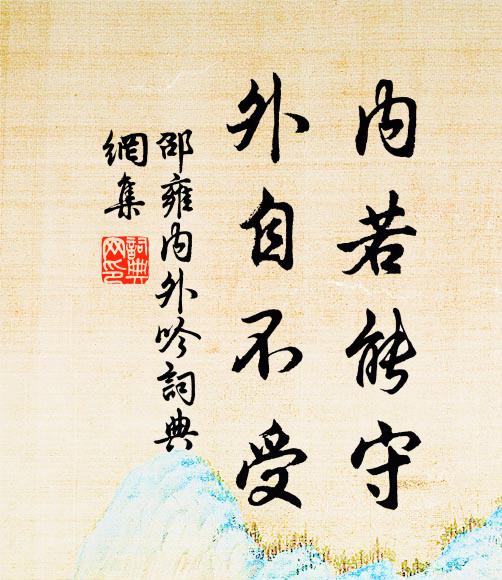 内若能守
外自不受
邵雍内外吟詞典
網集
詞典
网印